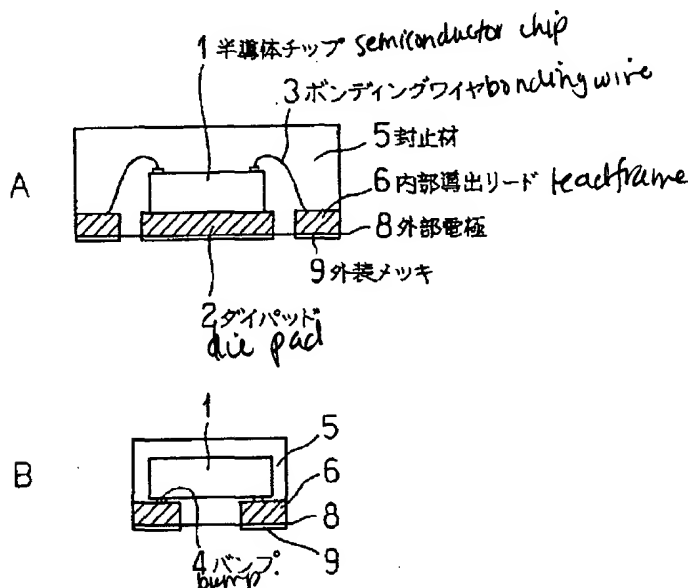 1 半導体チップ semiconductor chip
3 ボンディングワイヤ bonding wire
5 封止材
6 内部導出リード leadframe
8 外部電極
9 外装メッキ
2 ダイパッド
die pad
A
1
5
6
8
9
4 バンプ
bump
B